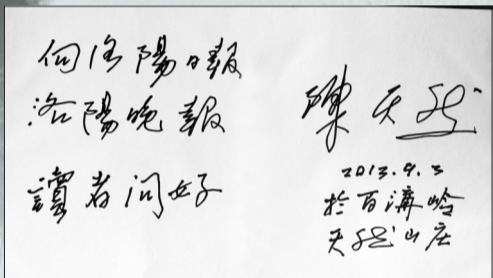 向洛陽日報
洛陽晚報
讀者问好
陳天然
2013.9.3
於百溝岭
天然山庄